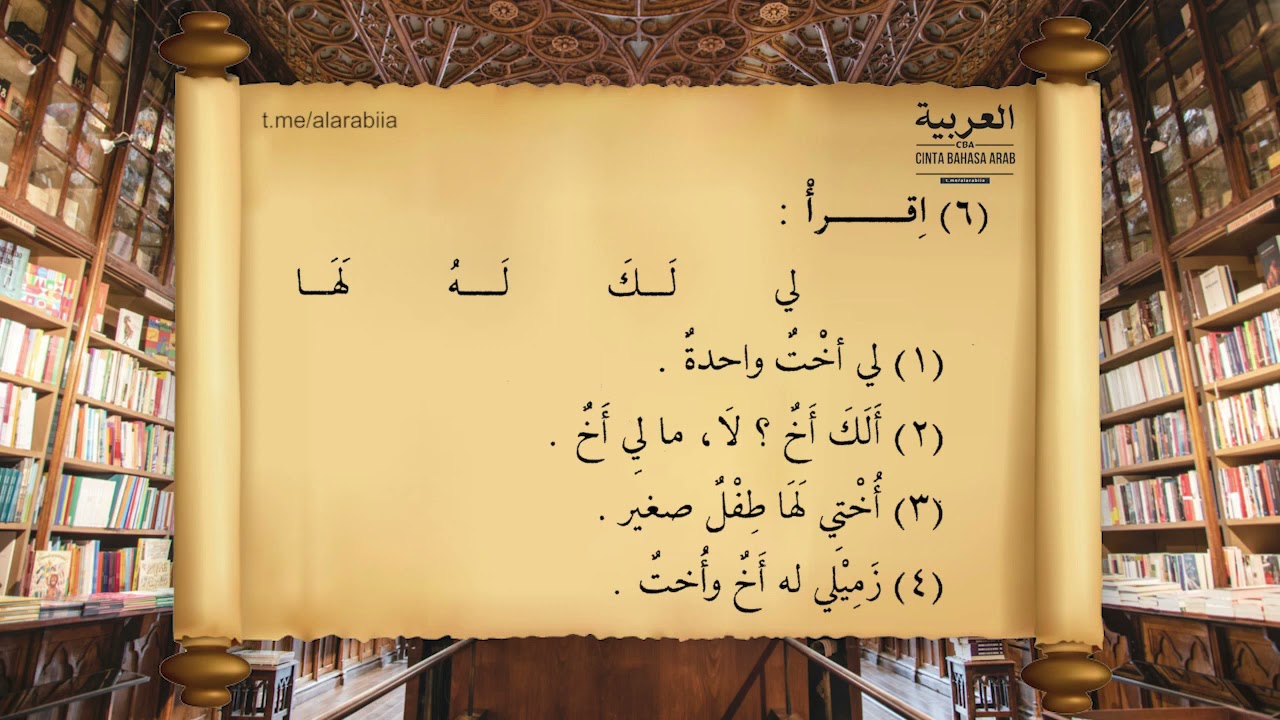 t.me/alarabiia
العربية
CBA
CINTA BAHASA ARAB
t.me/alarabiia
(٦) اِقـــرأْ :
لي لَـكَ لَـهُ لَهَـا
(١) لي أخْتٌ واحدةٌ .
(٢) أَلَكَ أَخٌ ؟ لَا، ما لِي أَخٌ .
(٣) أُخْتي لَهَا طِفْلٌ صغير .
(٤) زَمِيْلَي له أَخٌ وأُختٌ .